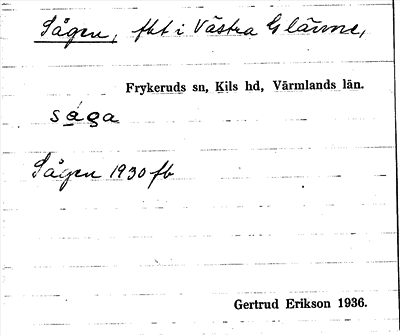 Sågen, fbt i Västra Glänne,
Frykeruds sn, Kils hd, Värmlands län.
sága
Sågen 1930 fb
Gertrud Erikson 1936.